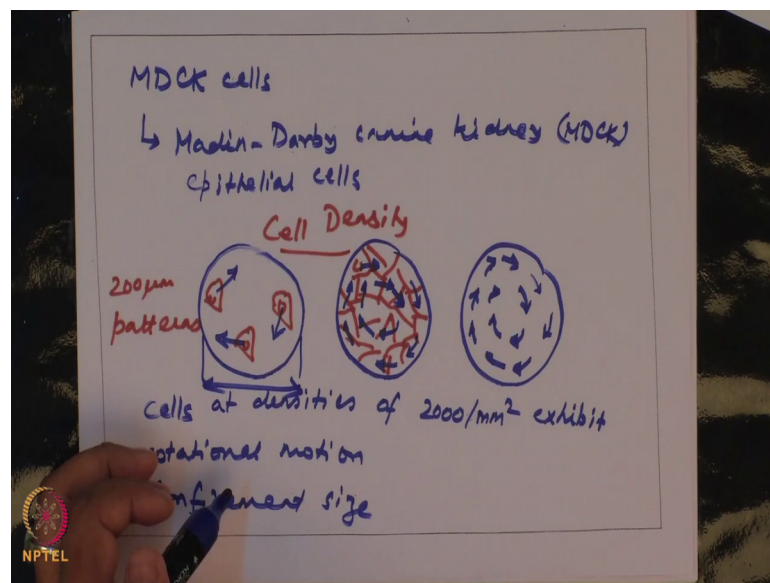 MDCK cells
↳ Madin-Darby canine kidney (MDCK)
epithelial cells
Cell Density
200μm
patterns
cells at densities of 2000/mm² exhibit
otational motion
size
NPTEL